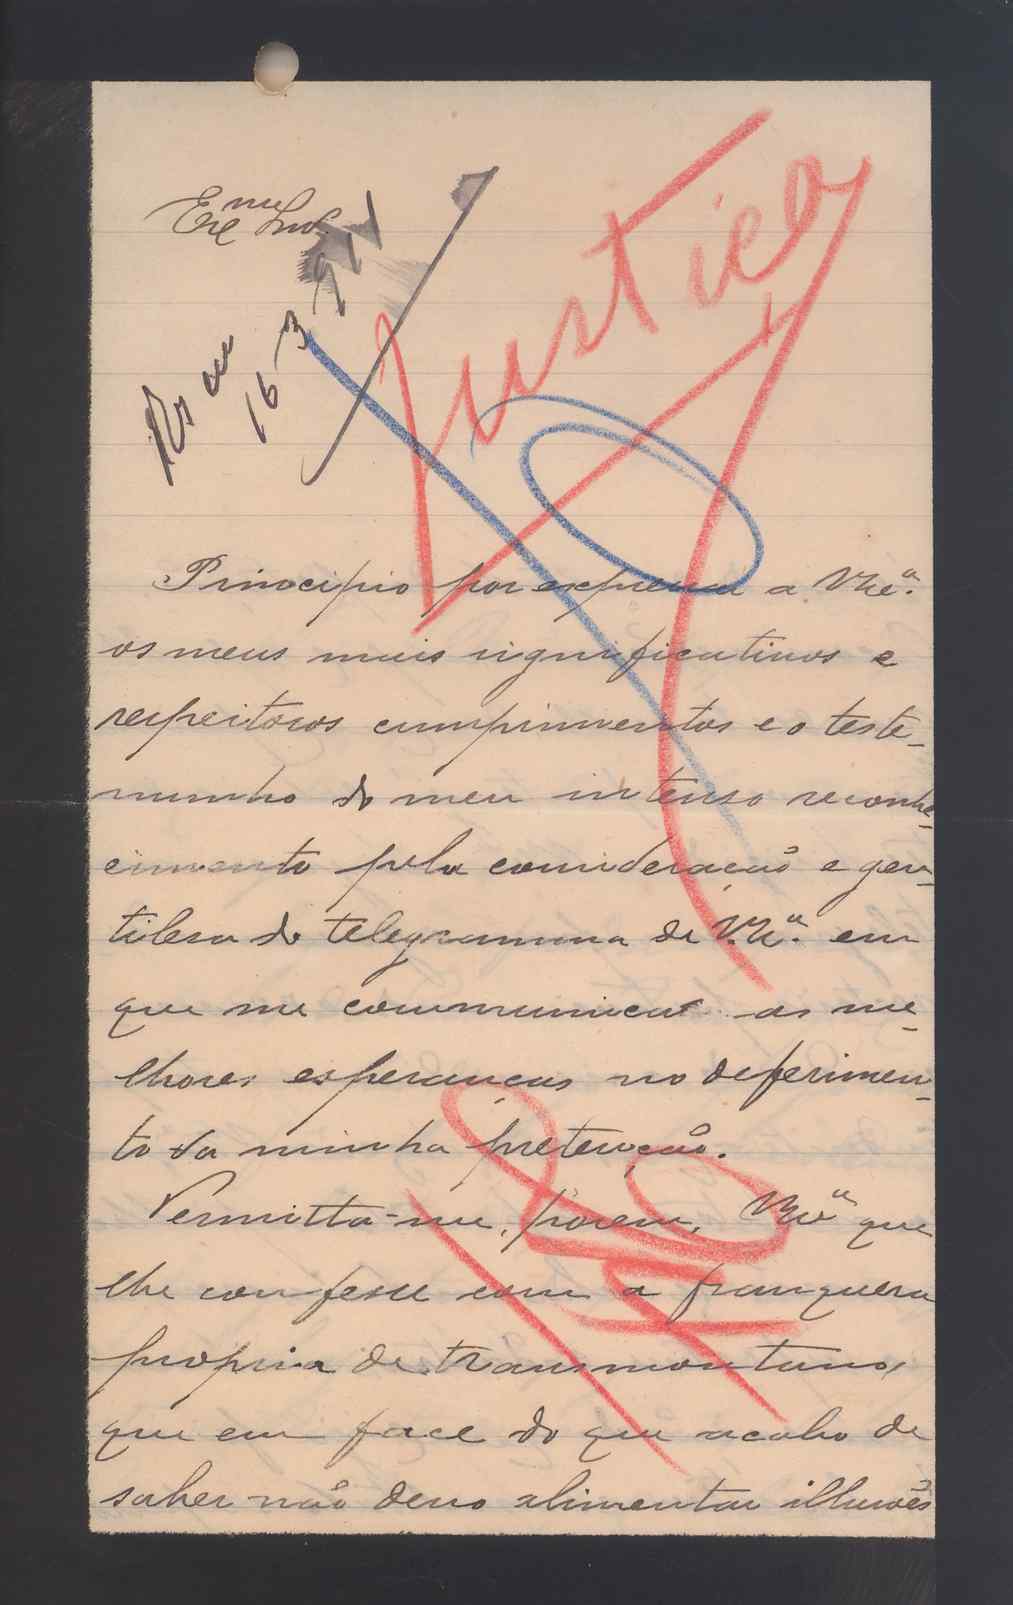 Exc.mo Snr.
Rs em
16-3-911
Justiça
Principio por expressar a V.Exc.ª
os meus mais significativos e
respeitosos cumprimentos e o teste-
munho do meu intenso reconhe-
cimento pela consideração e gen-
tilesa do telegramma de V.Ex.ª em
que me communica as me-
lhores esperanças no deferimen-
to da minha pretenção.
Permitta-me, porem, V.Ex.ª que
lhe confesse com a franquesa
propria de transmontano,
que em face do que acabo de
saber não devo alimentar illusões